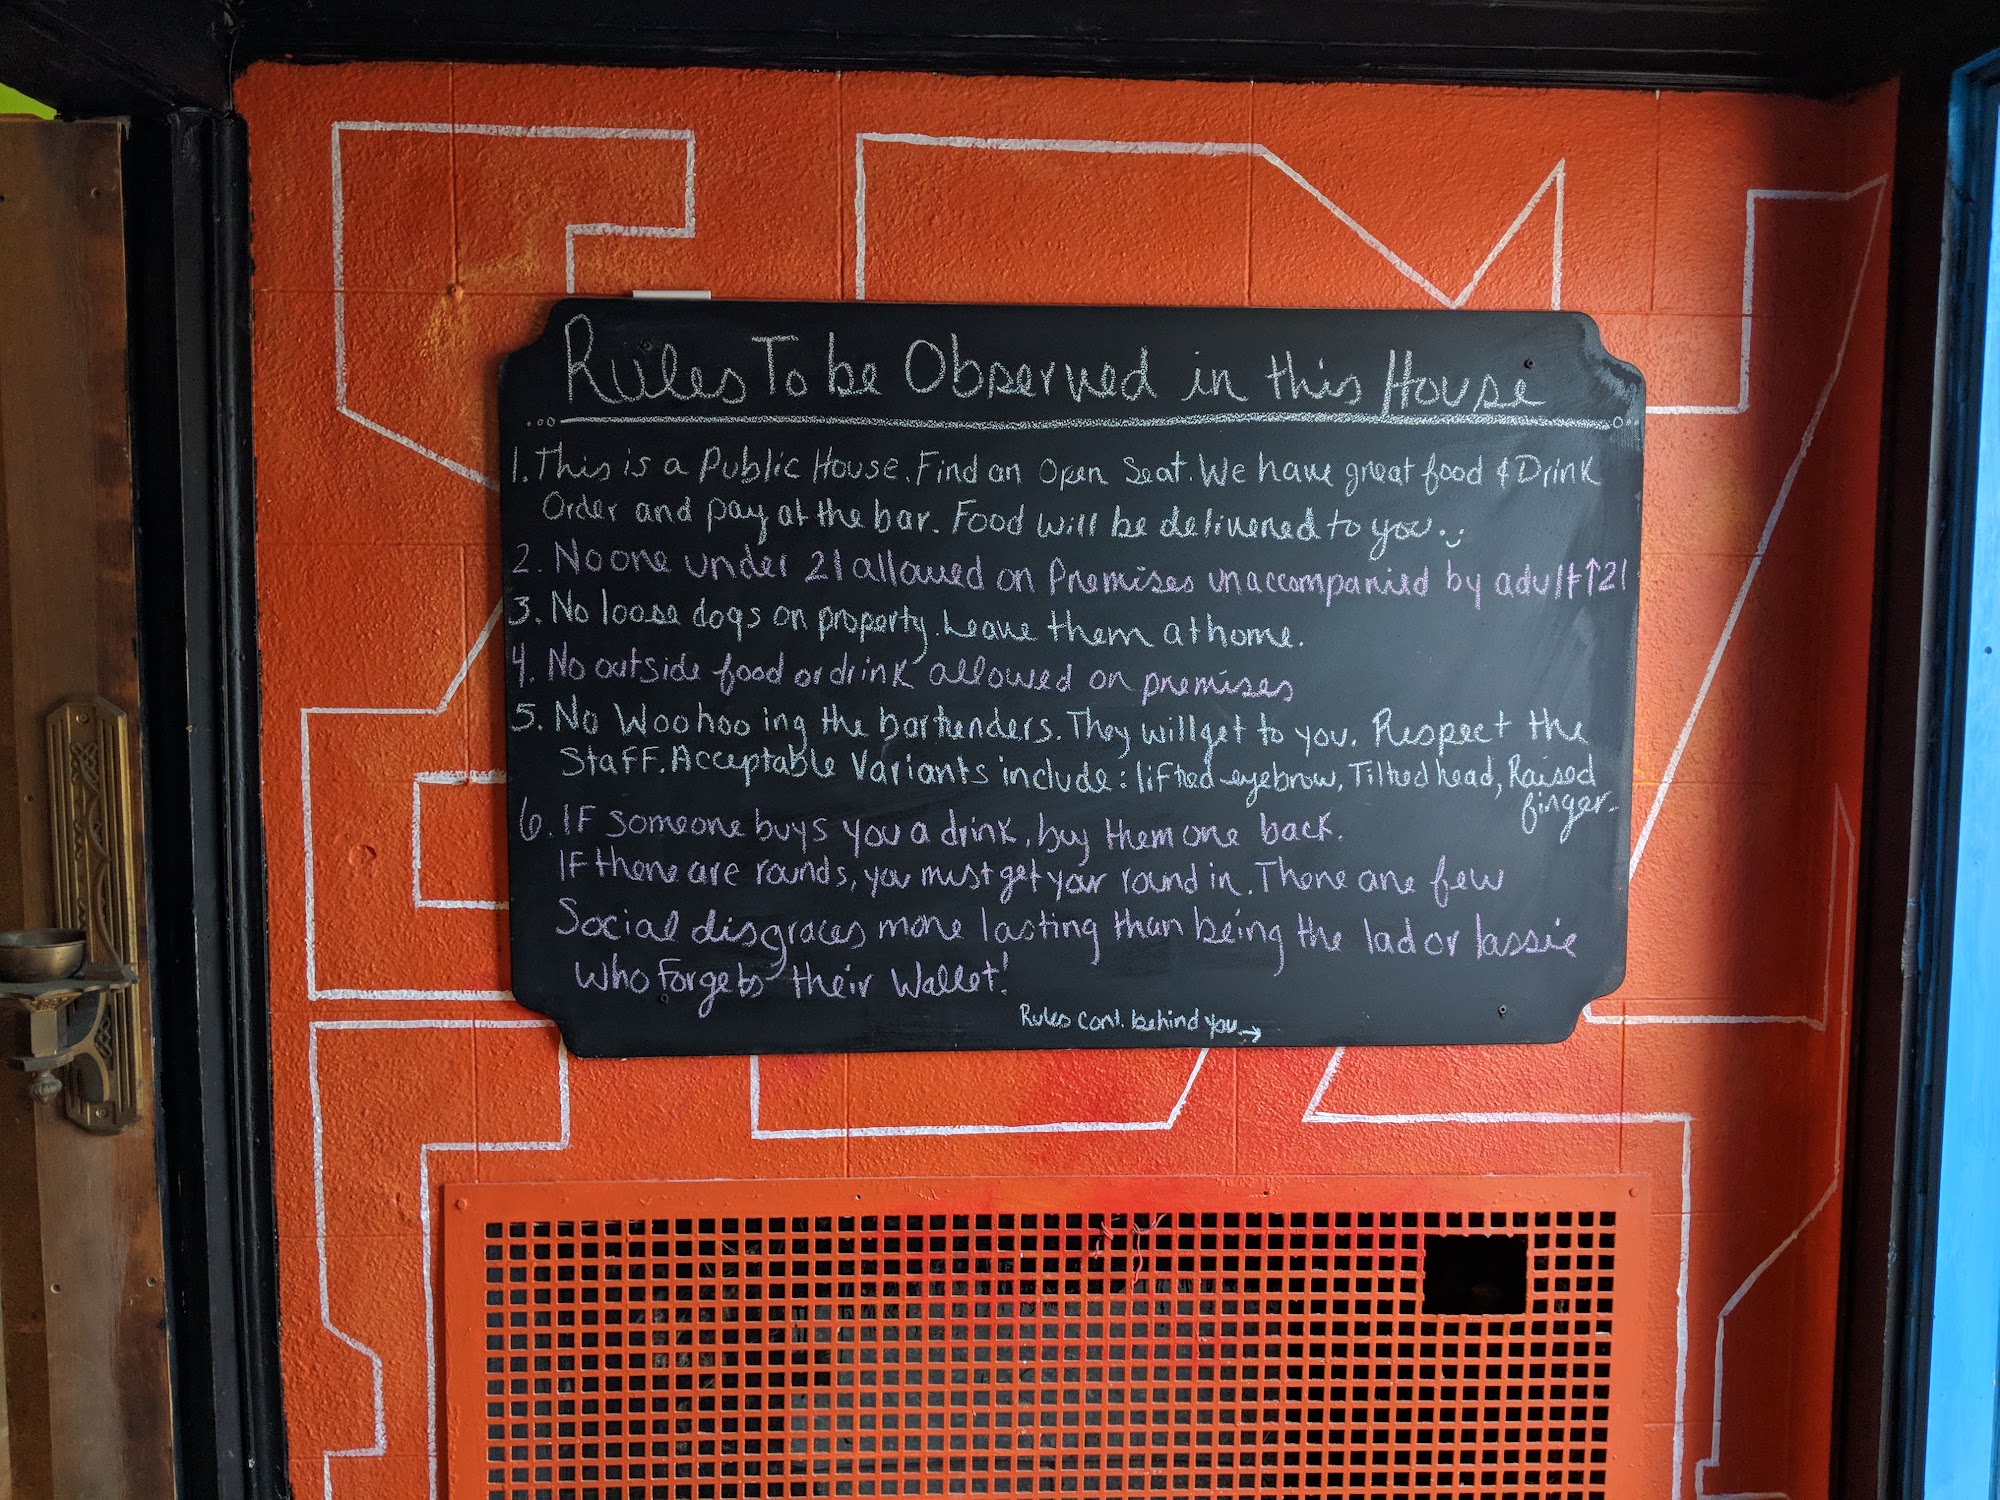 Rules To be Observed in this House
1. This is a Public House. Find an Open Seat. We have great food & Drink
Order and pay at the bar. Food will be delivered to you.
2. No one under 21 allowed on Premises unaccompanied by adult ↑21
3. No loose dogs on property. Leave them at home.
4. No outside food or drink allowed on premises
5. No Woohoo ing the bartenders. They will get to you. Respect the
Staff. Acceptable Variants include: lifted eyebrow, Tilted head, Raised
finger.
6. IF someone buys you a drink, buy them one back.
IF there are rounds, you must get your round in. There are few
Social disgraces more lasting than being the lad or lassie
who Forgets their Wallet!
Rules cont. behind you →